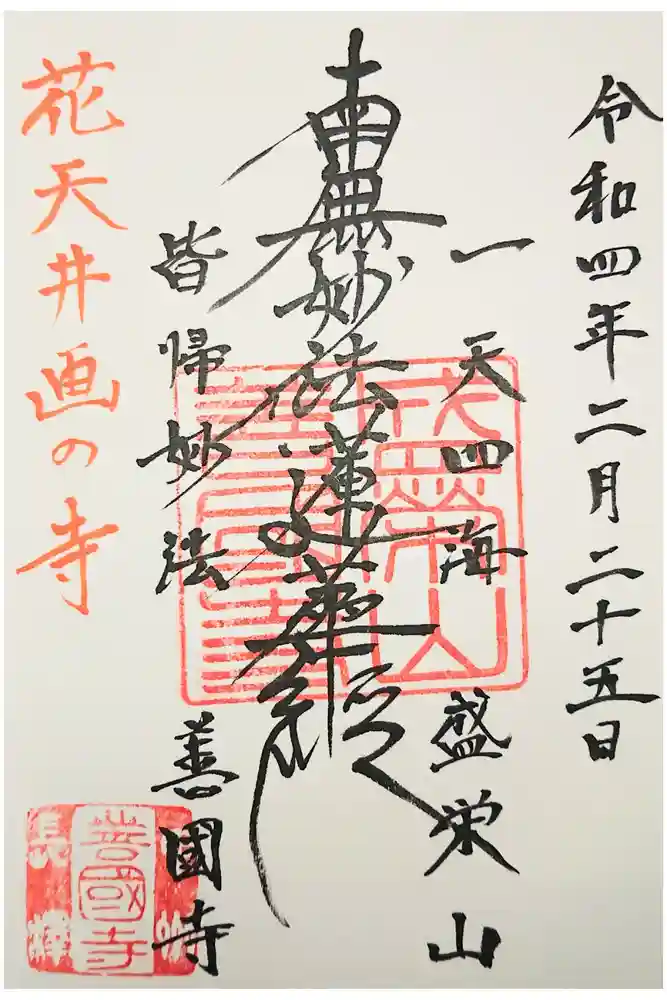 令和四年二月二十五日
一天四海
盛栄山
南無妙法蓮華経
皆歸妙法
善國寺
花天井画の寺
盛栄山
善國寺
善國寺
長